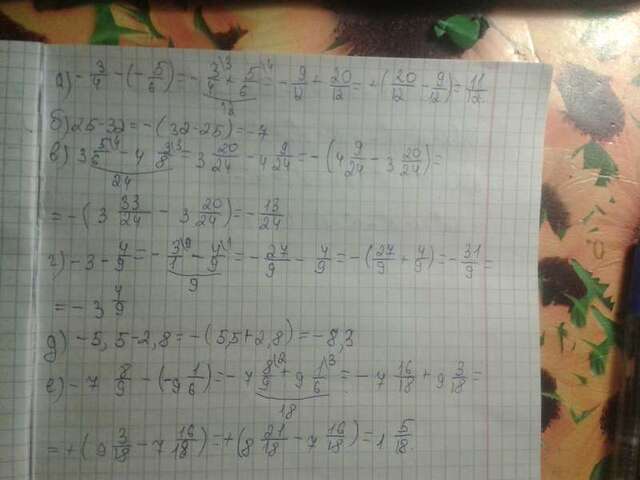 а) - 3/4 - (- 5/6) = - 3/4\3 + 5/6\2 = - 9/12 + 20/12 = + (20/12 - 9/12) = 11/12
12
б) 25-32 = - (32-25) = -7
в) 3 5/6\4 - 4 3/8\3 = 3 20/24 - 4 9/24 = - (4 9/24 - 3 20/24) =
24
= - (3 33/24 - 3 20/24) = - 13/24
г) - 3 - 4/9 = - 3/1\9 - 4/9\1 = - 27/9 - 4/9 = - (27/9 + 4/9) = - 31/9 =
9
= - 3 4/9
д) -5,5-2,8 = - (5,5+2,8) = -8,3
е) - 7 8/9 - (-9 1/6) = - 7 8/9\2 + 9 1/6\3 = - 7 16/18 + 9 3/18 =
18
= + (9 3/18 - 7 16/18) = + (8 21/18 - 7 16/18) = 1 5/18.